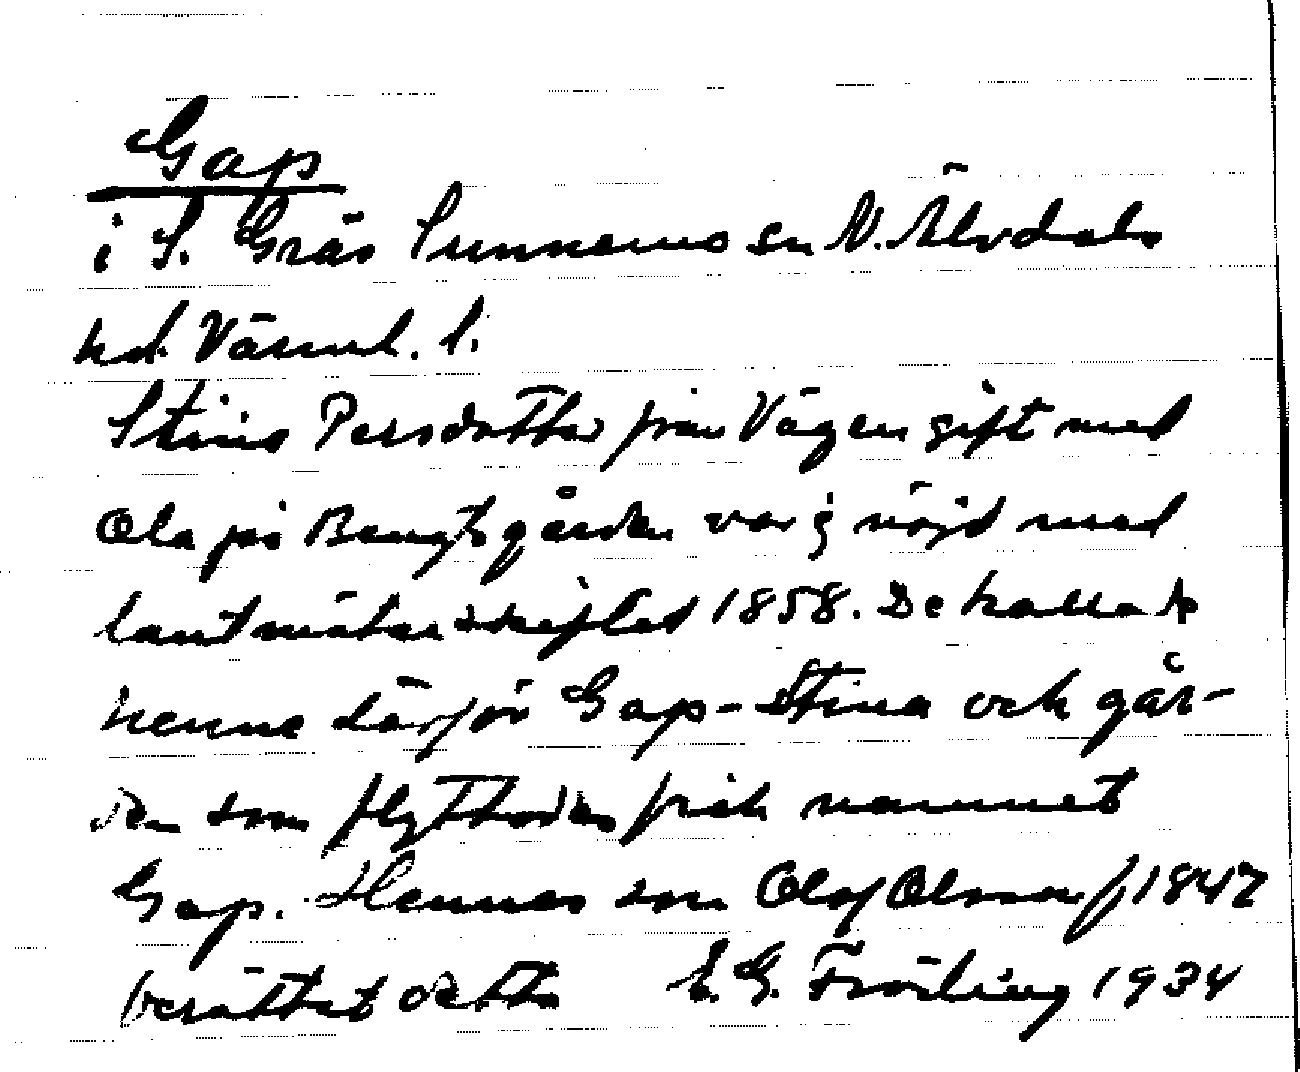 Gap
i S. Gräs Sunnemo sn N. Älvdals
hd. Värml. l.
Stina Persdotter från Vägen gift med
Ola på Bengtsgården var ej nöjd med
lantmäteriskiftet 1858. De kallade
henne därför Gap-Stina och går-
den som flyttades fick namnet
Gap. Hennes son Olof Olsson f 1847
berättat detta E. G. Fröding 1934